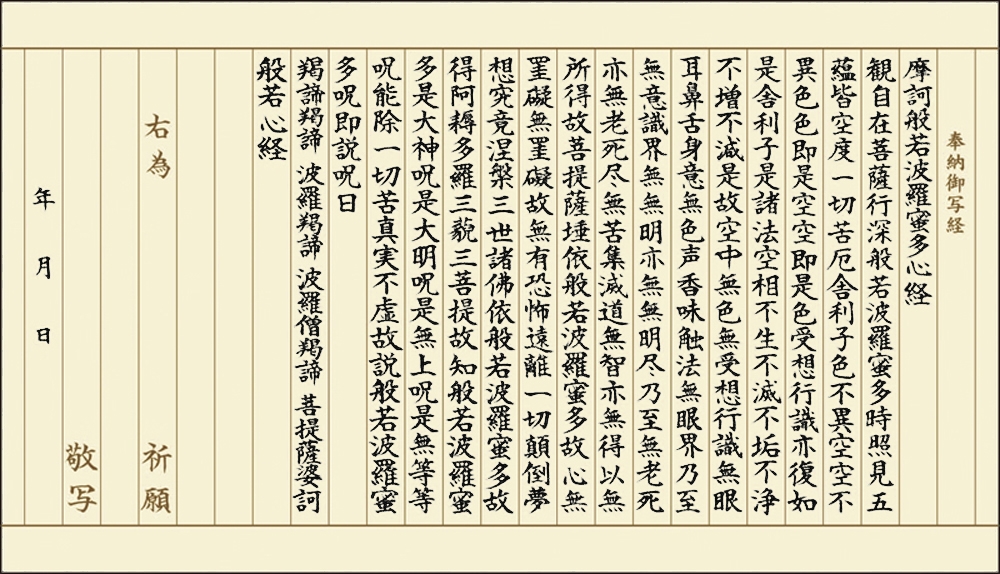 奉納御写経
摩訶般若波羅蜜多心経
観自在菩薩行深般若波羅蜜多時照見五
蘊皆空度一切苦厄舎利子色不異空空不
異色色即是空空即是色受想行識亦復如
是舎利子是諸法空相不生不滅不垢不浄
不増不減是故空中無色無受想行識無眼
耳鼻舌身意無色声香味触法無眼界乃至
無意識界無無明亦無無明尽乃至無老死
亦無老死尽無苦集滅道無智亦無得以無
所得故菩提薩埵依般若波羅蜜多故心無
罣礙無罣礙故無有恐怖遠離一切顛倒夢
想究竟涅槃三世諸佛依般若波羅蜜多故
得阿耨多羅三藐三菩提故知般若波羅蜜
多是大神呪是大明呪是無上呪是無等等
呪能除一切苦真実不虚故説般若波羅蜜
多呪即説呪曰
羯諦羯諦 波羅羯諦 波羅僧羯諦 菩提薩婆訶
般若心経
右為 祈願
敬写
年 月 日